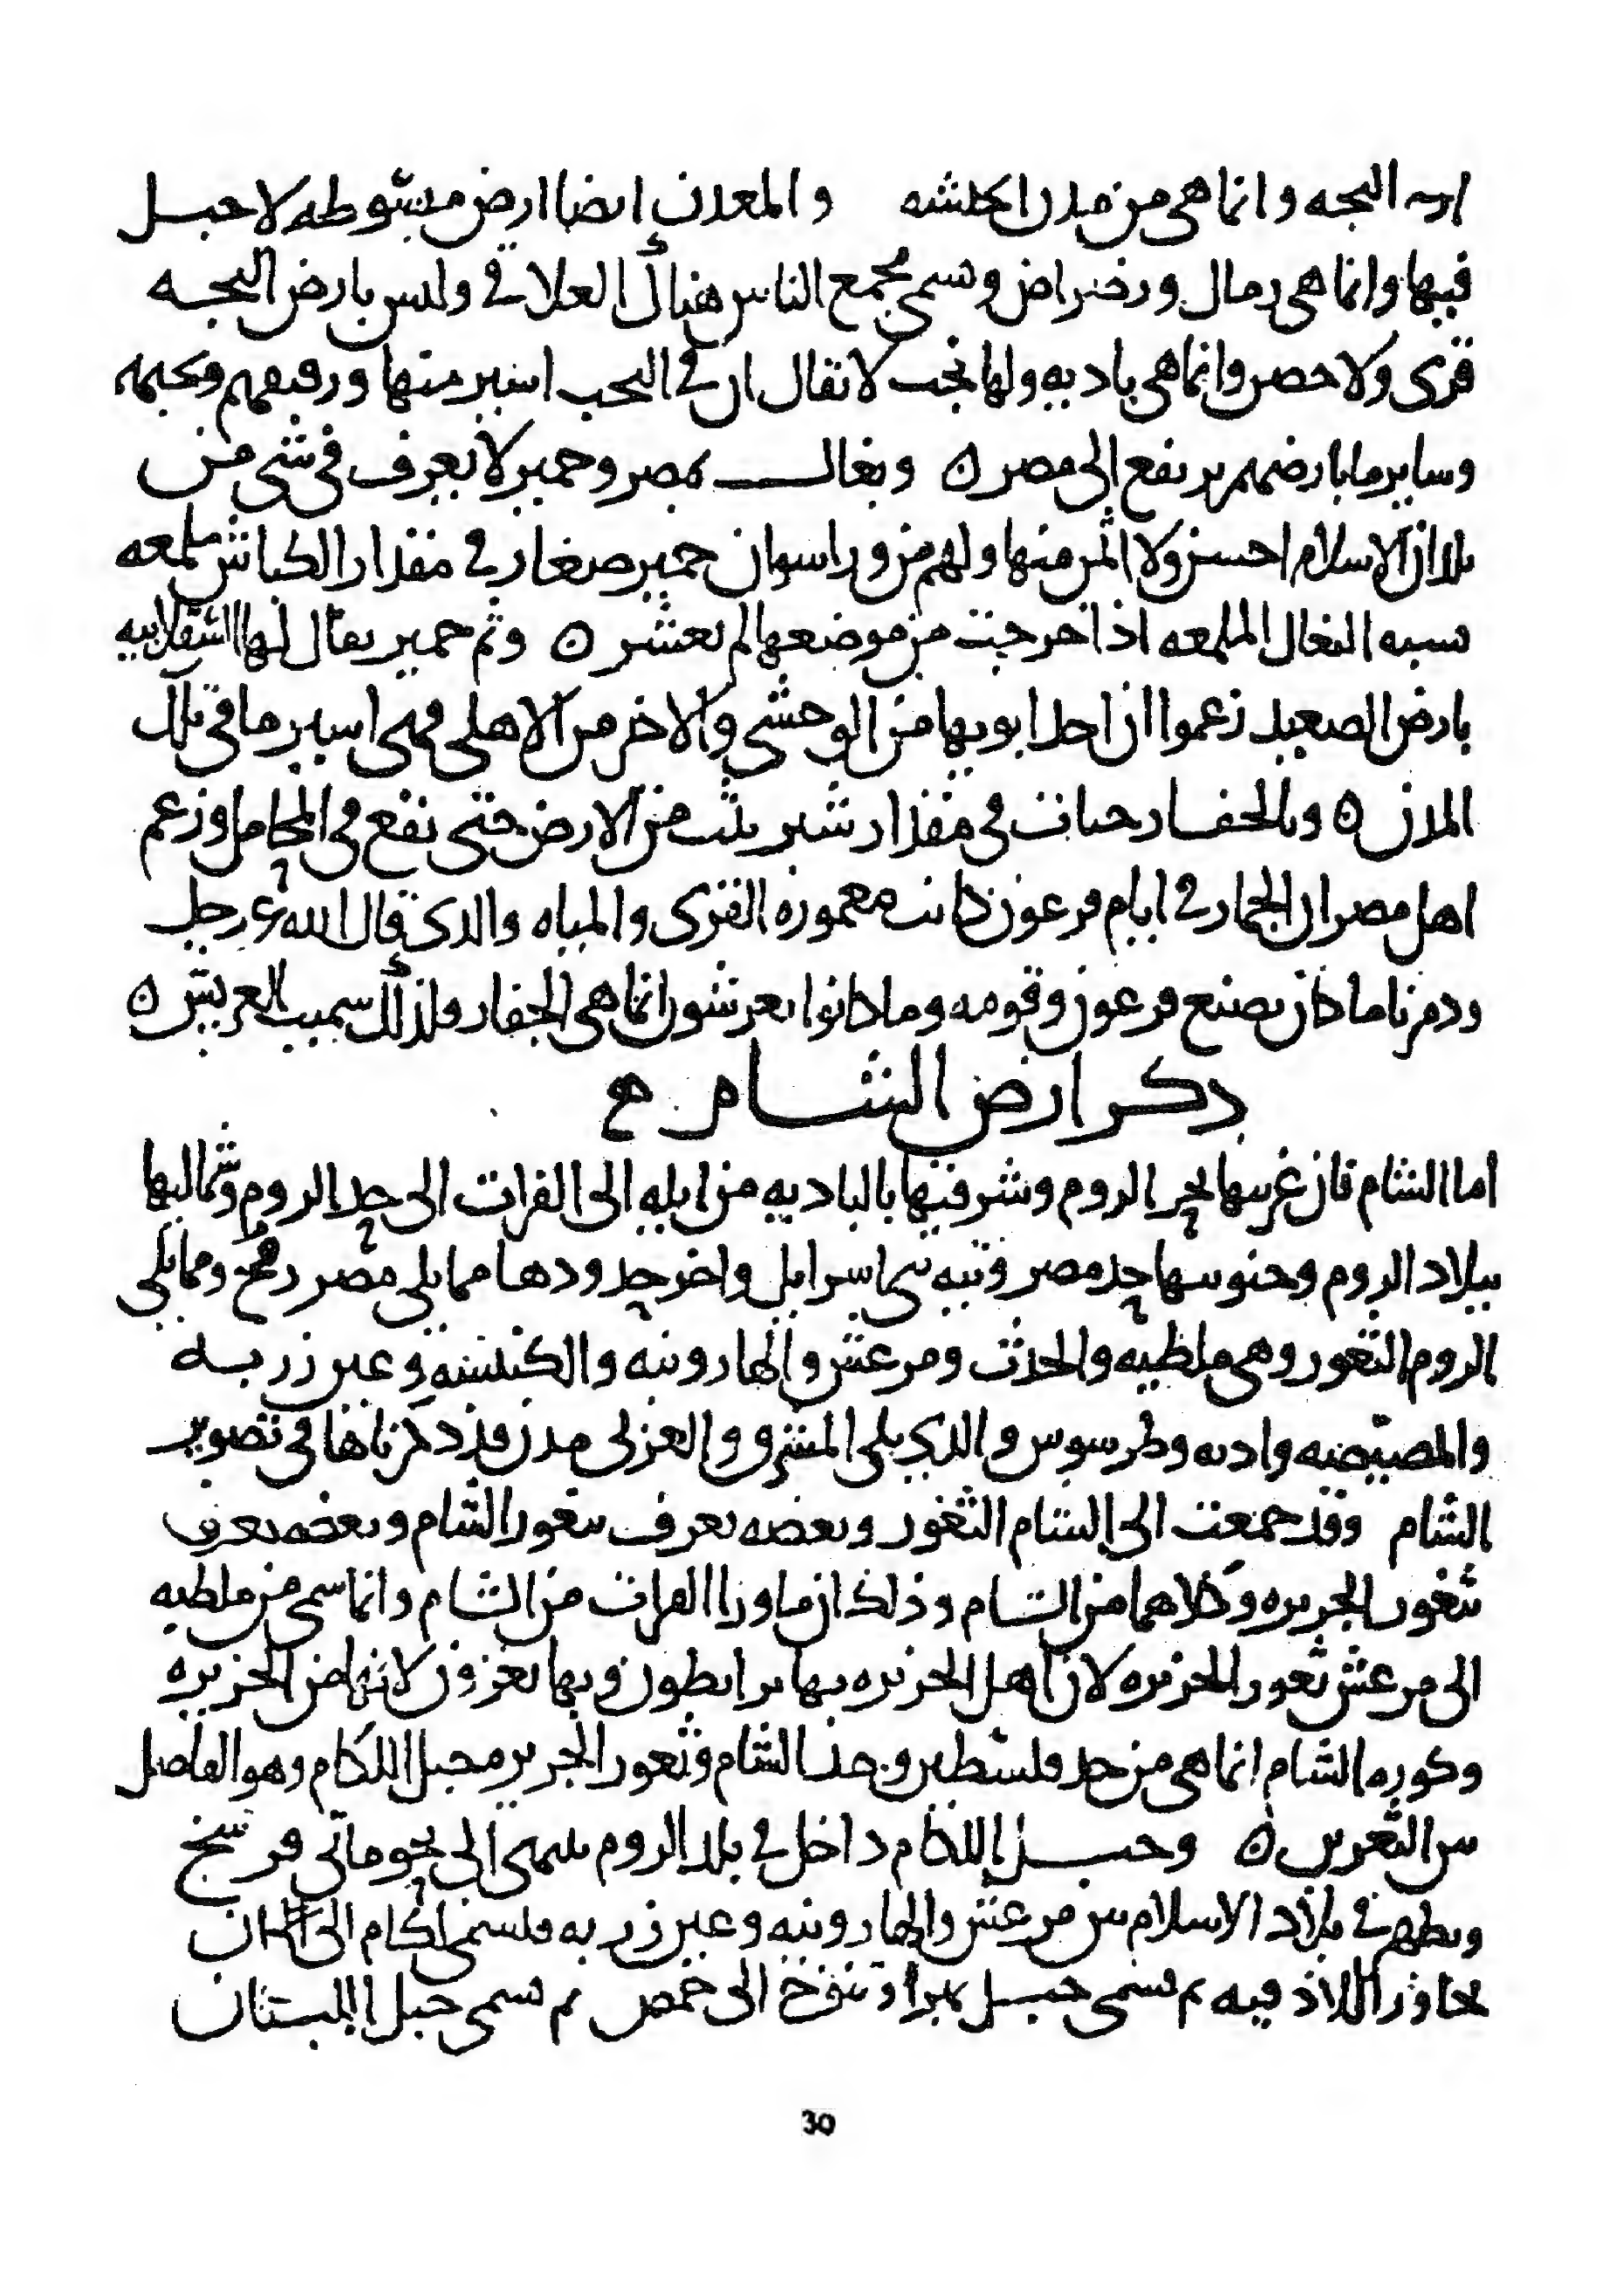 ارض البجه وانما هي من مدن الحبشه والمعدن ايضا ارض مبسوطه لا جبل
فيها وانما هي رمال ورضراض ويسمى مجمع الناس هناك العلاقي وليس بارض البجه
قرى ولا خصر وانما هي باديه ولها نجب لا يقال ان في النجب اسير منها ورقيقهم ونجبهم
وساير ما بارضهم يرتفع الى مصر ٥ وبغال بمصر وحمير لا يعرف في شي من
بلدان الاسلام احسن ولا اثمن منها ولهم من ورا اسوان حمير صغار في مقدار الكباش ملمعه
تشبه البغال الملمعه اذا اخرجت من موضعها لم تعش ٥ وثم حمير يقال لها السقلابيه
بارض الصعيد زعموا ان احد ابويها من الوحشي والاخر من الاهلي فهي اسير ما في تلك
المدن ٥ وبالجفار حيات في مقدار شبر يثب من الارض حتى تقع في المحامل وزعم
اهل مصر ان الجفار في ايام فرعون كانت معموره القرى والمياه والذي قال الله عز وجل
ودمرنا ما كان يصنع فرعون وقومه وما كانوا يعرشون انما هي الجفار ولذلك سميت العريش ٥
ذكر ارض الشام
اما الشام فان غربيها بحر الروم وشرقيها بالباديه من ايله الى الفرات الى حد الروم وشماليها
ببلاد الروم وجنوبيها حد مصر وتيه بني اسرايل واخر حدودها مما يلي مصر رفح ومما يلي
الروم الثغور وهي ملطيه والحدث ومرعش والهارونيه والكنيسه وعين زربه
والمصيصه وادنه وطرسوس والذي يلي المشرق والغربي مدن قد ذكرناها في تصوير
الشام وقد جمعت الى الشام الثغور وبعضه يعرف بثغور الشام وبعضه يعرف
بثغور الجزيره وكلاهما من الشام وذلك ان ما ورا الفرات من الشام وانما سمي من ملطيه
الى مرعش ثغور الجزيره لان اهل الجزيره بها يرابطون وبها يغزون لانها من الجزيره
وكوره الشام انما هي من حد فلسطين وحد الشام وثغور الجزير مجبل اللكام وهو الفاصل
بين الثغرين ٥ وجبل اللكام داخل في بلد الروم ينتهي الى نحو ماتي فرسخ
ويظهر في بلاد الاسلام بين مرعش والهارونيه وعين زربه فيسمى لكام الى ان
يجاوز اللاذقيه ثم يسمى جبل بهرا وتنوخ الى حمص ثم يسمى جبل اللبنان
30